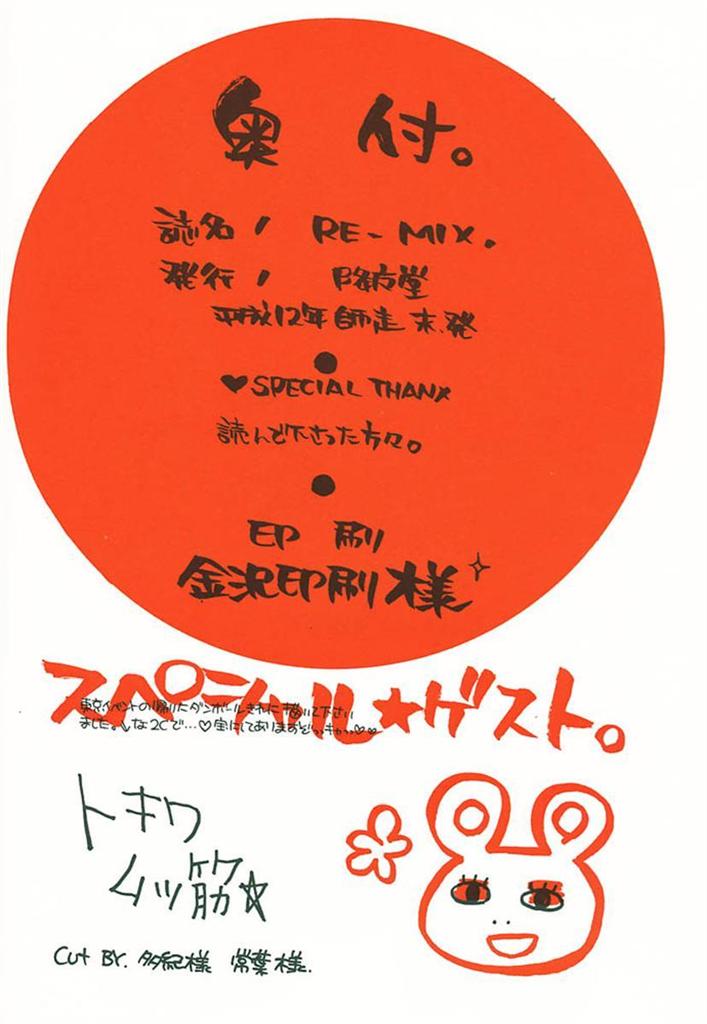 奥付。
誌名/ RE-MIX.
発行/ 降方堂
平成12年師走末、発
●
♥SPECIAL THANX
読んで下さった方々。
●
印刷
金沢印刷様
スペシャル★ゲスト。
東京イベントの帰りにダンボールきれに描いて下さい
ました。
トキワ
ムツ筋☆
Cut BY. 多紀様 常葉様.